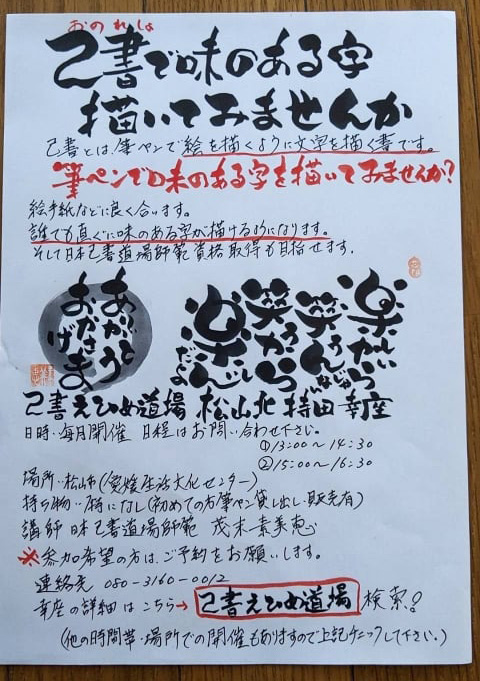 おのれしょ
己書で味のある字
描いてみませんか
己書とは、筆ペンで絵を描くように文字を描く書です。
筆ペンで味のある字を描いてみませんか?
絵手紙などに良く合います。
誰でも直ぐに味のある字が描けるようになります。
そして日本己書道場師範資格取得も目指せます。
ありがとう
おかげさま
楽しいから
笑うんじゃない
笑うから
楽しいんだよ
己書えひめ道場 松山北 持田 幸座
日時・毎月開催 日程はお問い合わせ下さい。
①13:00~14:30
②15:00~16:30
場所・松山市(愛媛生活文化センター)
持ち物・特になし(初めての方筆ペン貸し出し・販売有)
講師 日本己書道場師範 茂末素美恵
※参加希望の方は、ご予約をお願いします。
連絡先 080-3160-0012
幸座の詳細はこちら→ 己書えひめ道場 検索!
(他の時間帯・場所での開催もありますので上記チェックして下さい。)